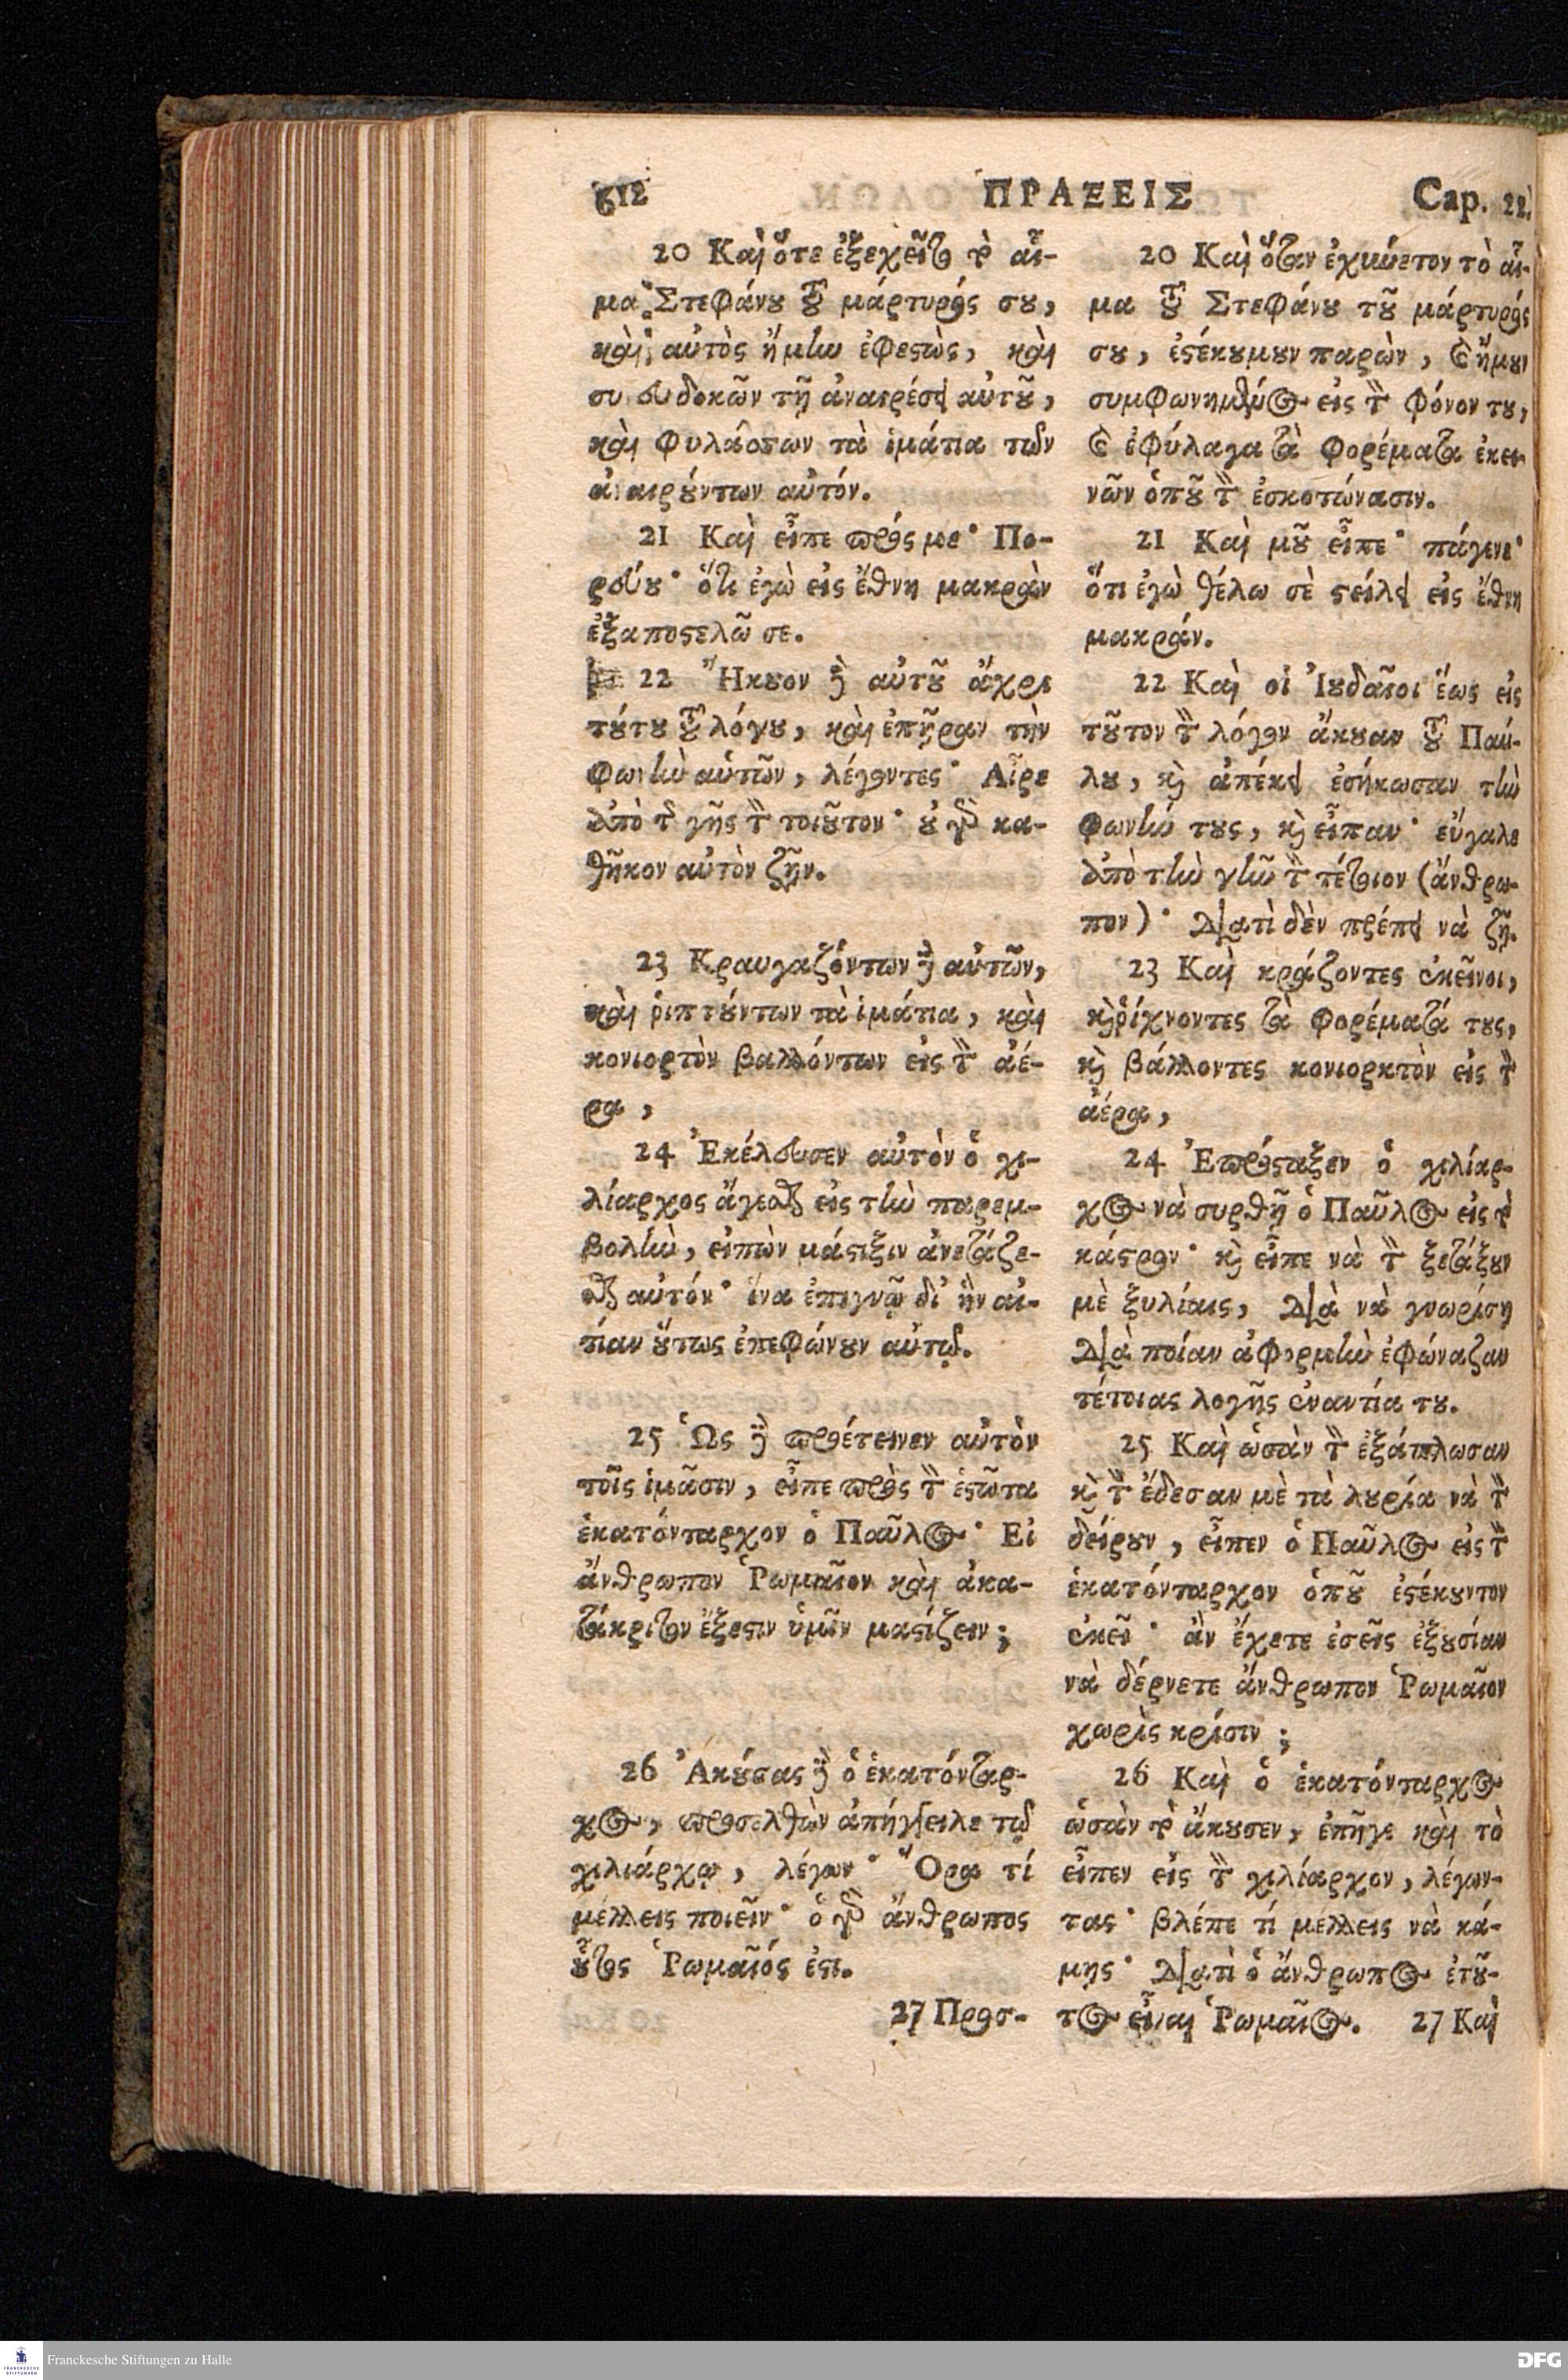 612 ΠΡΑΞΕΙΣ Cap. 22.
20 Καὶ ὅτε ἐξεχεῖτο τὸ αἷ-
μα Στεφάνου τοῦ μάρτυρός σου,
καὶ αὐτὸς ἤμην ἐφεστὼς, καὶ
συνευδοκῶν τῇ ἀναιρέσει αὐτοῦ,
καὶ φυλάσσων τὰ ἱμάτια τῶν
ἀναιρούντων αὐτόν.
21 Καὶ εἶπε πρός με· Πο-
ρεύου· ὅτι ἐγὼ εἰς ἔθνη μακρὰν
ἐξαποστελῶ σε.
22 Ἤκουον δὲ αὐτοῦ ἄχρι
τούτου τοῦ λόγου, καὶ ἐπῆραν τὴν
φωνὴν αὑτῶν, λέγοντες· Αἶρε
ἀπὸ τῆς γῆς τὸν τοιοῦτον· οὐ γὰρ κα-
θῆκον αὐτὸν ζῇν.
23 Κραυγαζόντων δὲ αὐτῶν,
καὶ ῥιπτούντων τὰ ἱμάτια, καὶ
κονιορτὸν βαλλόντων εἰς τὸν ἀέ-
ρα,
24 Ἐκέλευσεν αὐτὸν ὁ χι-
λίαρχος ἄγεσθαι εἰς τὴν παρεμ-
βολὴν, εἰπὼν μάστιξιν ἀνετάζε-
σθαι αὐτόν· ἵνα ἐπιγνῷ δι' ἣν αἰ-
τίαν οὕτως ἐπεφώνουν αὐτῷ.
25 Ὡς δὲ προέτεινεν αὐτὸν
τοῖς ἱμᾶσιν, εἶπε πρὸς τὸν ἑστῶτα
ἑκατόνταρχον ὁ Παῦλος· Εἰ
ἄνθρωπον Ῥωμαῖον καὶ ἀκα-
τάκριτον ἔξεστιν ὑμῖν μαστίζειν;
26 Ἀκούσας δὲ ὁ ἑκατόνταρ-
χος, προσελθὼν ἀπήγγειλε τῷ
χιλιάρχῳ, λέγων· Ὅρα τί
μέλλεις ποιεῖν· ὁ γὰρ ἄνθρωπος
οὗτος Ῥωμαῖός ἐστι.
27 Προσ-
20 Καὶ ὅταν ἐχύνετον τὸ αἷ-
μα τοῦ Στεφάνου τοῦ μάρτυρός
σου, ἐστέκουμουν παρὼν, καὶ ἤμουν
συμφωνημένος εἰς τὸν φόνον του,
καὶ ἐφύλαγα τὰ φορέματα ἐκει-
νῶν ὁποῦ τὸν ἐσκοτώνασιν.
21 Καὶ μοῦ εἶπε· πάγενε·
ὅτι ἐγὼ θέλω σὲ στείλει εἰς ἔθνη
μακράν.
22 Καὶ οἱ Ἰουδαῖοι ἕως εἰς
τοῦτον τὸν λόγον ἄκουαν τοῦ Παύ-
λου, καὶ ἀπέκει ἐσήκωσαν τὴν
φωνήν τους, καὶ εἶπαν· εὔγαλε
ἀπὸ τὴν γῆν τὸν τέτοιον (ἄνθρω-
πον)· Διατὶ δὲν πρέπει νὰ ζῇ.
23 Καὶ κράζοντες ἐκεῖνοι,
καὶ ῥίχνοντες τὰ φορέματά τους,
καὶ βάλλοντες κονιορκτὸν εἰς τὸν
ἀέρα,
24 Ἐπρόσταξεν ὁ χιλίαρ-
χος νὰ συρθῇ ὁ Παῦλος εἰς τὸ
κάστρον· καὶ εἶπε νὰ τὸν ξετάξουν
μὲ ξυλίαις, Διὰ νὰ γνωρίσῃ
Διὰ ποίαν ἀφορμὴν ἐφώναζαν
τέτοιας λογῆς ἐναντία του.
25 Καὶ ὡσὰν τὸν ἐξάπλωσαν
καὶ τὸν ἔδεσαν μὲ τὰ λουρία νὰ τὸν
δείρουν, εἶπεν ὁ Παῦλος εἰς τὸν
ἑκατόνταρχον ὁποῦ ἐστέκουντον
ἐκεῖ· ἂν ἔχετε ἐσεῖς ἐξουσίαν
νὰ δέρνετε ἄνθρωπον Ῥωμαῖον
χωρὶς κρίσιν;
26 Καὶ ὁ ἑκατόνταρχος
ὡσὰν τὸ ἄκουσεν, ἐπῆγε καὶ τὸ
εἶπεν εἰς τὸν χιλίαρχον, λέγων-
τας· βλέπε τί μέλλεις νὰ κά-
μῃς· Διατὶ ὁ ἄνθρωπος ἐτοῦ-
τος εἶναι Ῥωμαῖος. 27 Καὶ
Franckesche Stiftungen zu Halle
DFG